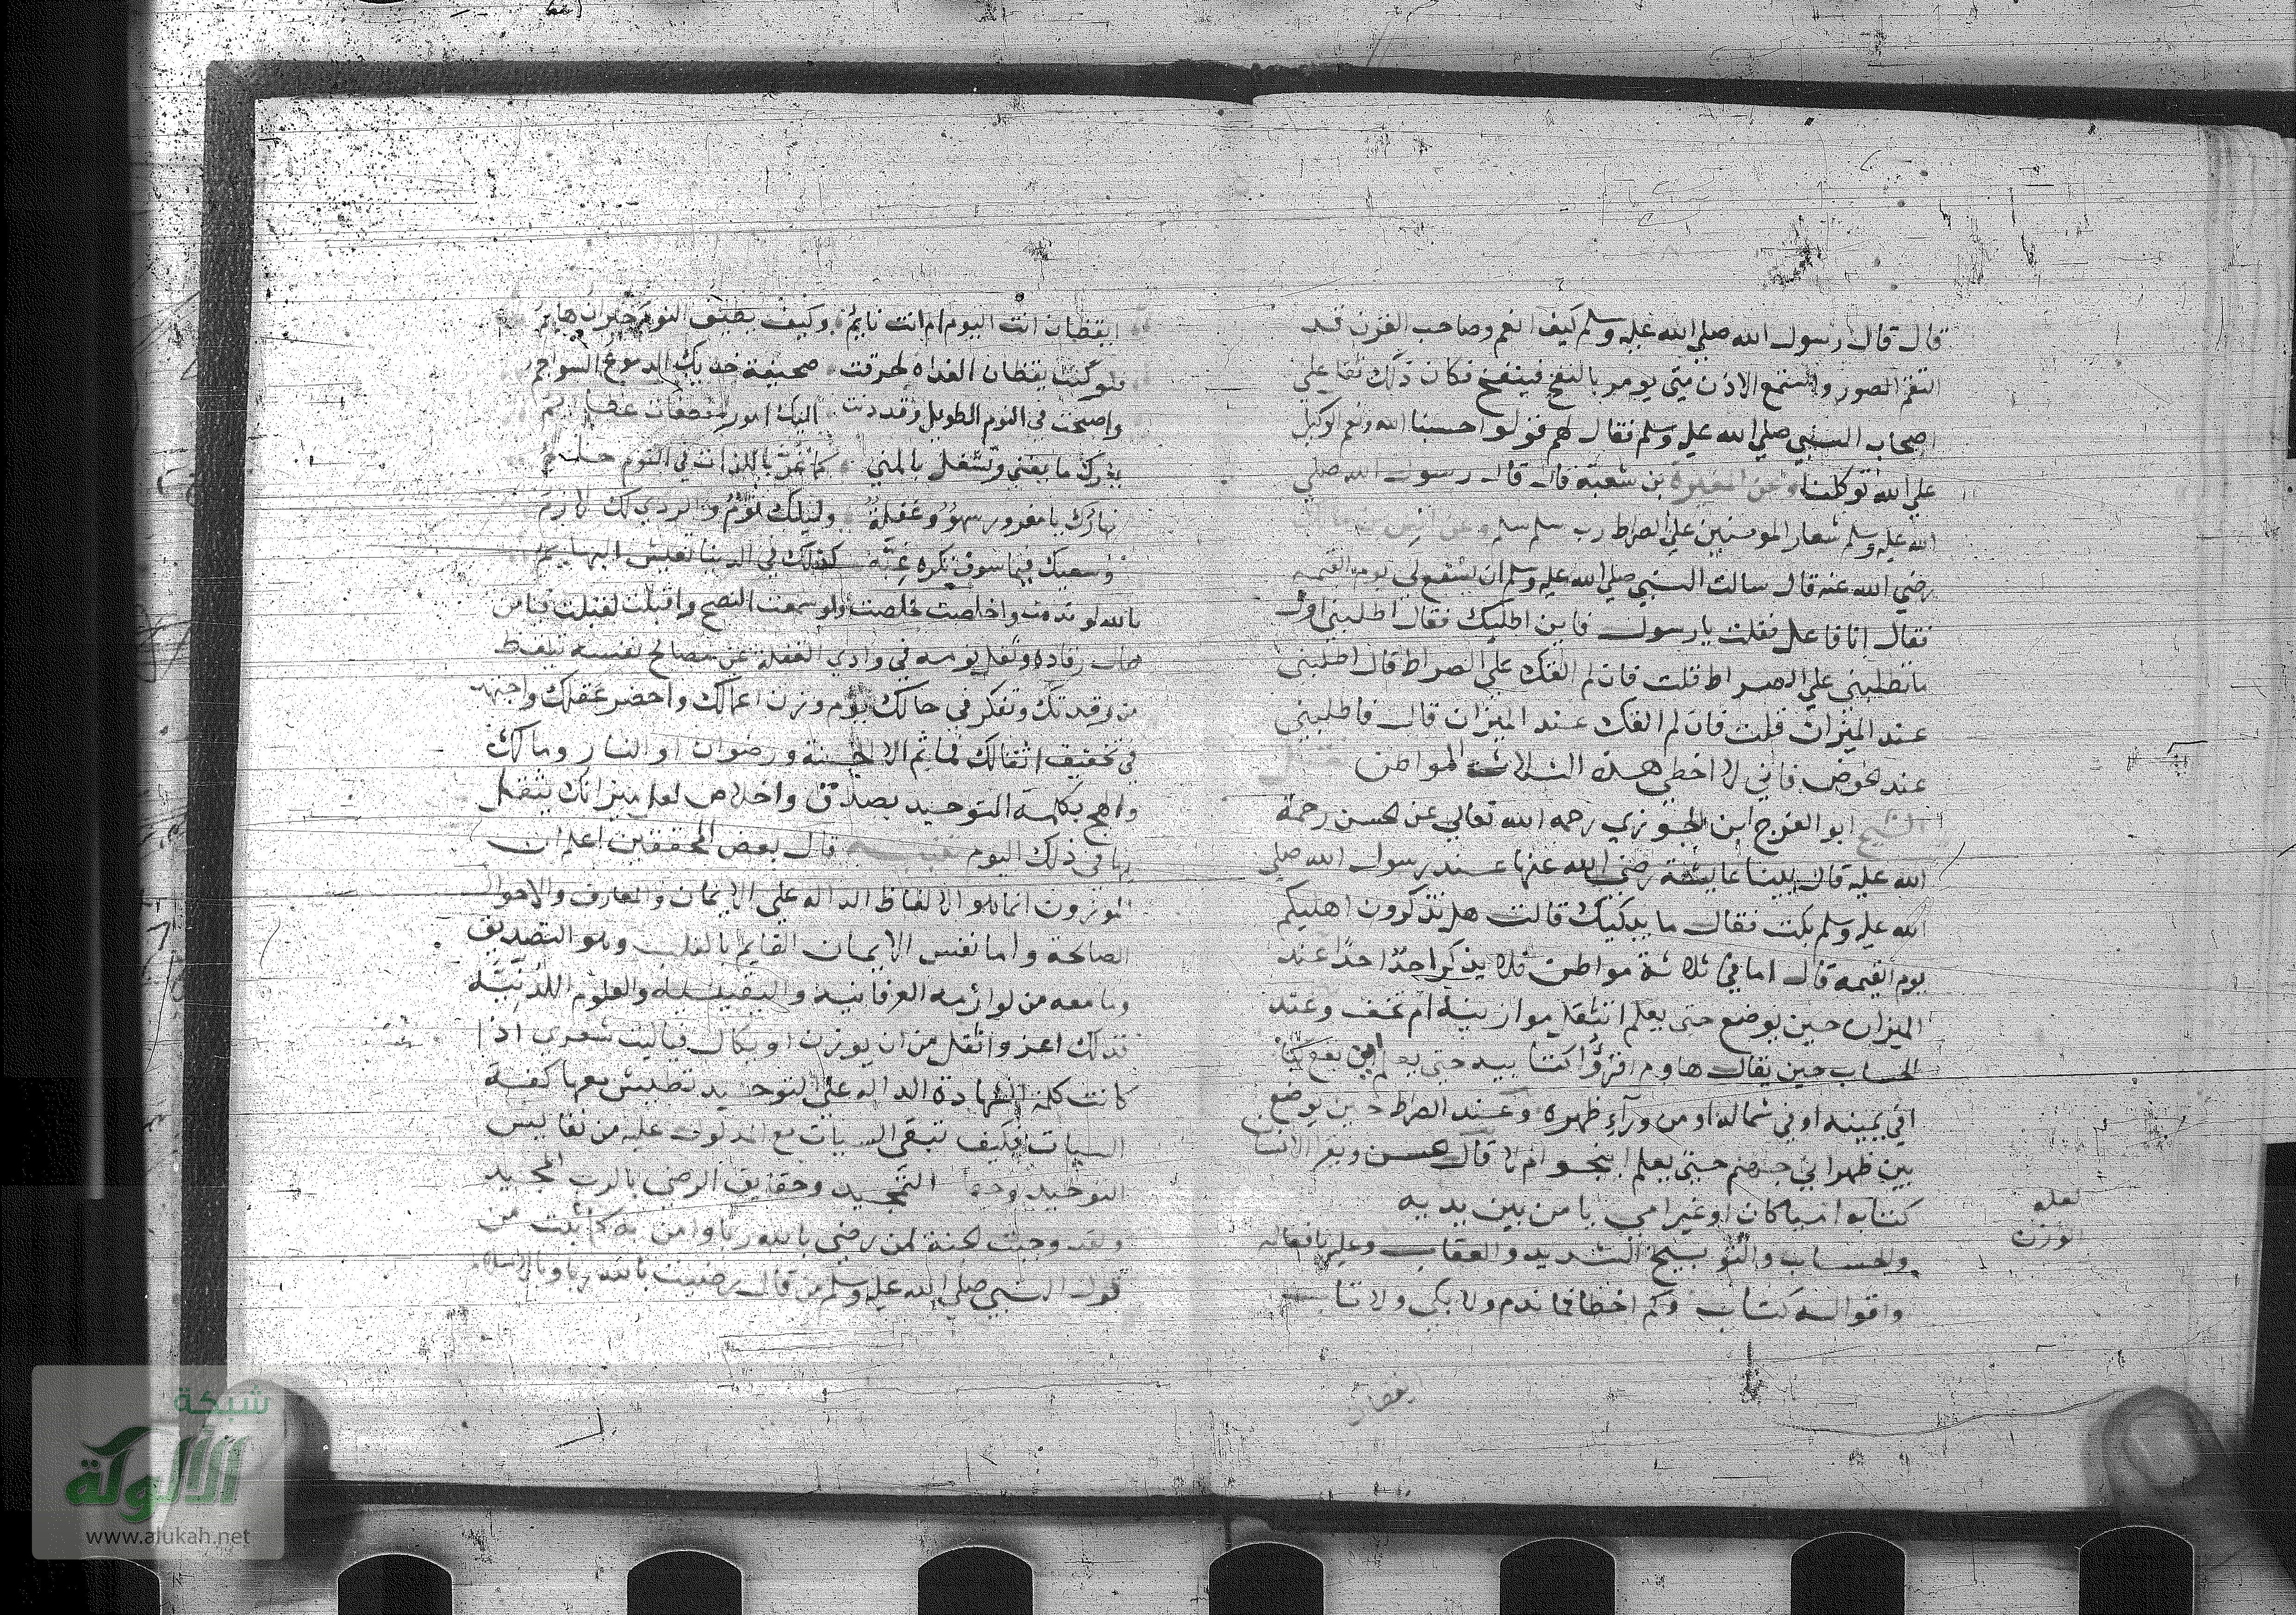 قال قال رسول الله صلي الله عليه وسلم كيف انعم وصاحب القرن قد
التقم الصور واستمع الاذن متى يومر بالنفخ فينفخ فكان ذلك ثقل علي
اصحاب النبي صلي الله عليه وسلم فقال لهم قولوا حسبنا الله ونعم الوكيل
علي الله توكلنا وعن المغيرة بن شعبة قال قال رسول الله صلي
الله عليه وسلم شعار المومنين علي الصراط رب سلم سلم وعن انس بن مالك
رضي الله عنه قال سالت النبي صلي الله عليه وسلم ان يشفع لي يوم القيمه
فقال انا فاعل فقلت يا رسول فاين اطلبك فقال اطلبني اول
ما تطلبني علي الصراط قلت فان لم القك علي الصراط قال اطلبني
عند الميزان قلت فان لم القك عند الميزان قال فاطلبني
عند الحوض فاني لا اخطي هذه الثلاث المواطن
الشيخ ابو الفرج ابن الجوزي رحمه الله تعالي عن الحسن رحمة
الله عليه قال بينا عايشة رضي الله عنها عند رسول الله صلي
الله عليه وسلم بكت فقال ما يبكيك قالت هل تذكرون اهليكم
يوم القيمه قال اما في ثلاثة مواطن فلا يذكر احدا احدا عند
الميزان حين يوضع حتى يعلم اتثقل موازينه ام تخف وعند
الحساب حين يقال هاوم اقرؤا كتابيه حتى يعلم اين يقع كتابه
افي يمينه او في شماله او من ورآء ظهره وعند الصراط حين يوضع
بين ظهراني جهنم حتى يعلم اينجو ام لا قال الحسن ويقرا الانسان
كتابه اميا كان او غير امي يا من بين يديه
والحساب والتوبيخ الشديد والعقاب وعليه بافعاله
واقواله كتاب وكم اخطا فما ندم ولا بكي ولا تاب
لعله
الوزن
ايقظان
ايقظان انت اليوم ام انت نايم وكيف يطيق النوم حيران هايم
فلو كنت يقظان الغداة لحرقت صحيفة خديك الدموع السواجم
واصبحت في النوم الطويل وقد دنت اليك امور مفظعات عظايم
يغرك ما يفني وتشغل بالمني كما غر باللذات في النوم حالم
نهارك يا مغرور سهو وغفلة وليلك نوم والردي لك لازم
وسعيك فيما سوف تكره غبه كذلك في الدنيا تعيش البهايم
بالله لو ندمت واخلصت تخلصت ولو سمعت النصح واقبلت لقبلت فيا من
طال رقاده ونقل يومه في وادي الغفلة عن مصالح نفسه تيقظ
من رقدتك وتفكر في حالك يوم وزن اعمالك واحضر عقلك واجتهد
في تخفيف اثقالك فما ثم الا الجنة ورضوان او النار ومالك
والهج بكلمة التوحيد بصدق واخلاص لعل ميزانك يثقل
بها في ذلك اليوم تنبيه قال بعض المحققين اعلم ان
الموزون انما هو الالفاظ الداله علي الايمان والمعارف والاحوال
الصالحة واما نفس الايمان القايم بالقلب وهو التصديق
وما معه من لوازمه العرفانيه واليقينيه والعلوم اللدنيه
فذلك اعز واثقل من ان يوزن او يكال فياليت شعري اذا
كانت كلمة الشهادة الداله علي التوحيد تطيش معها كفة
السيات فكيف تبقي السيات مع المدلول عليه من نفايس
التوحيد التمجيد وحقايق الرضي بالرب المجيد
ولقد وجبت الجنة لمن رضي بالله ربا وامن به كما ثبت من
قول النبي صلي الله عليه وسلم من قال رضيت بالله ربا وبالاسلام
شبكة
الألوكة
www.alukah.net